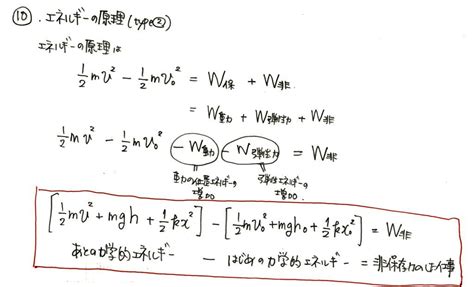 ⑩. エネルギーの原理 (type②)
エネルギーの原理は
1/2 mv² − 1/2 mv₀² = W保 + W非.
= W重力 + W弾性力 + W非
1/2 mv² − 1/2 mv₀² − W重力 − W弾性力 = W非
重力の位置エネルギーの増加. 弾性エネルギーの増加.
[1/2 mv² + mgh + 1/2 kx²] − [1/2 mv₀² + mgh₀ + 1/2 kx₀²] = W非
あとの力学的エネルギー − はじめの力学的エネルギー = 非保存力のした仕事